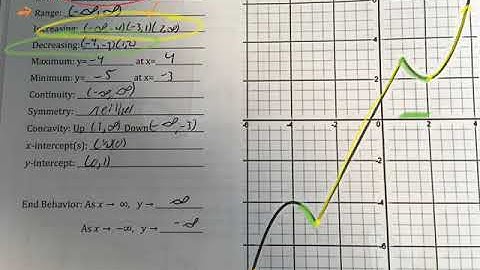 Range: (-∞,∞)
Increasing: (-∞,-4)(-3,1)(2,∞)
Decreasing: (-4,-3)(1,2)
Maximum: y= -4 at x= 4
Minimum: y= -5 at x= -3
Continuity: (-∞,∞)
Symmetry: neither
Concavity: Up (1,∞) Down (-∞,-3)
x-intercept(s):
y-intercept: (0,1)
End Behavior: As x → ∞, y → ∞
As x → -∞, y → -∞
6
4
2
-6 -4 -2 2 4
-2
-4
-6